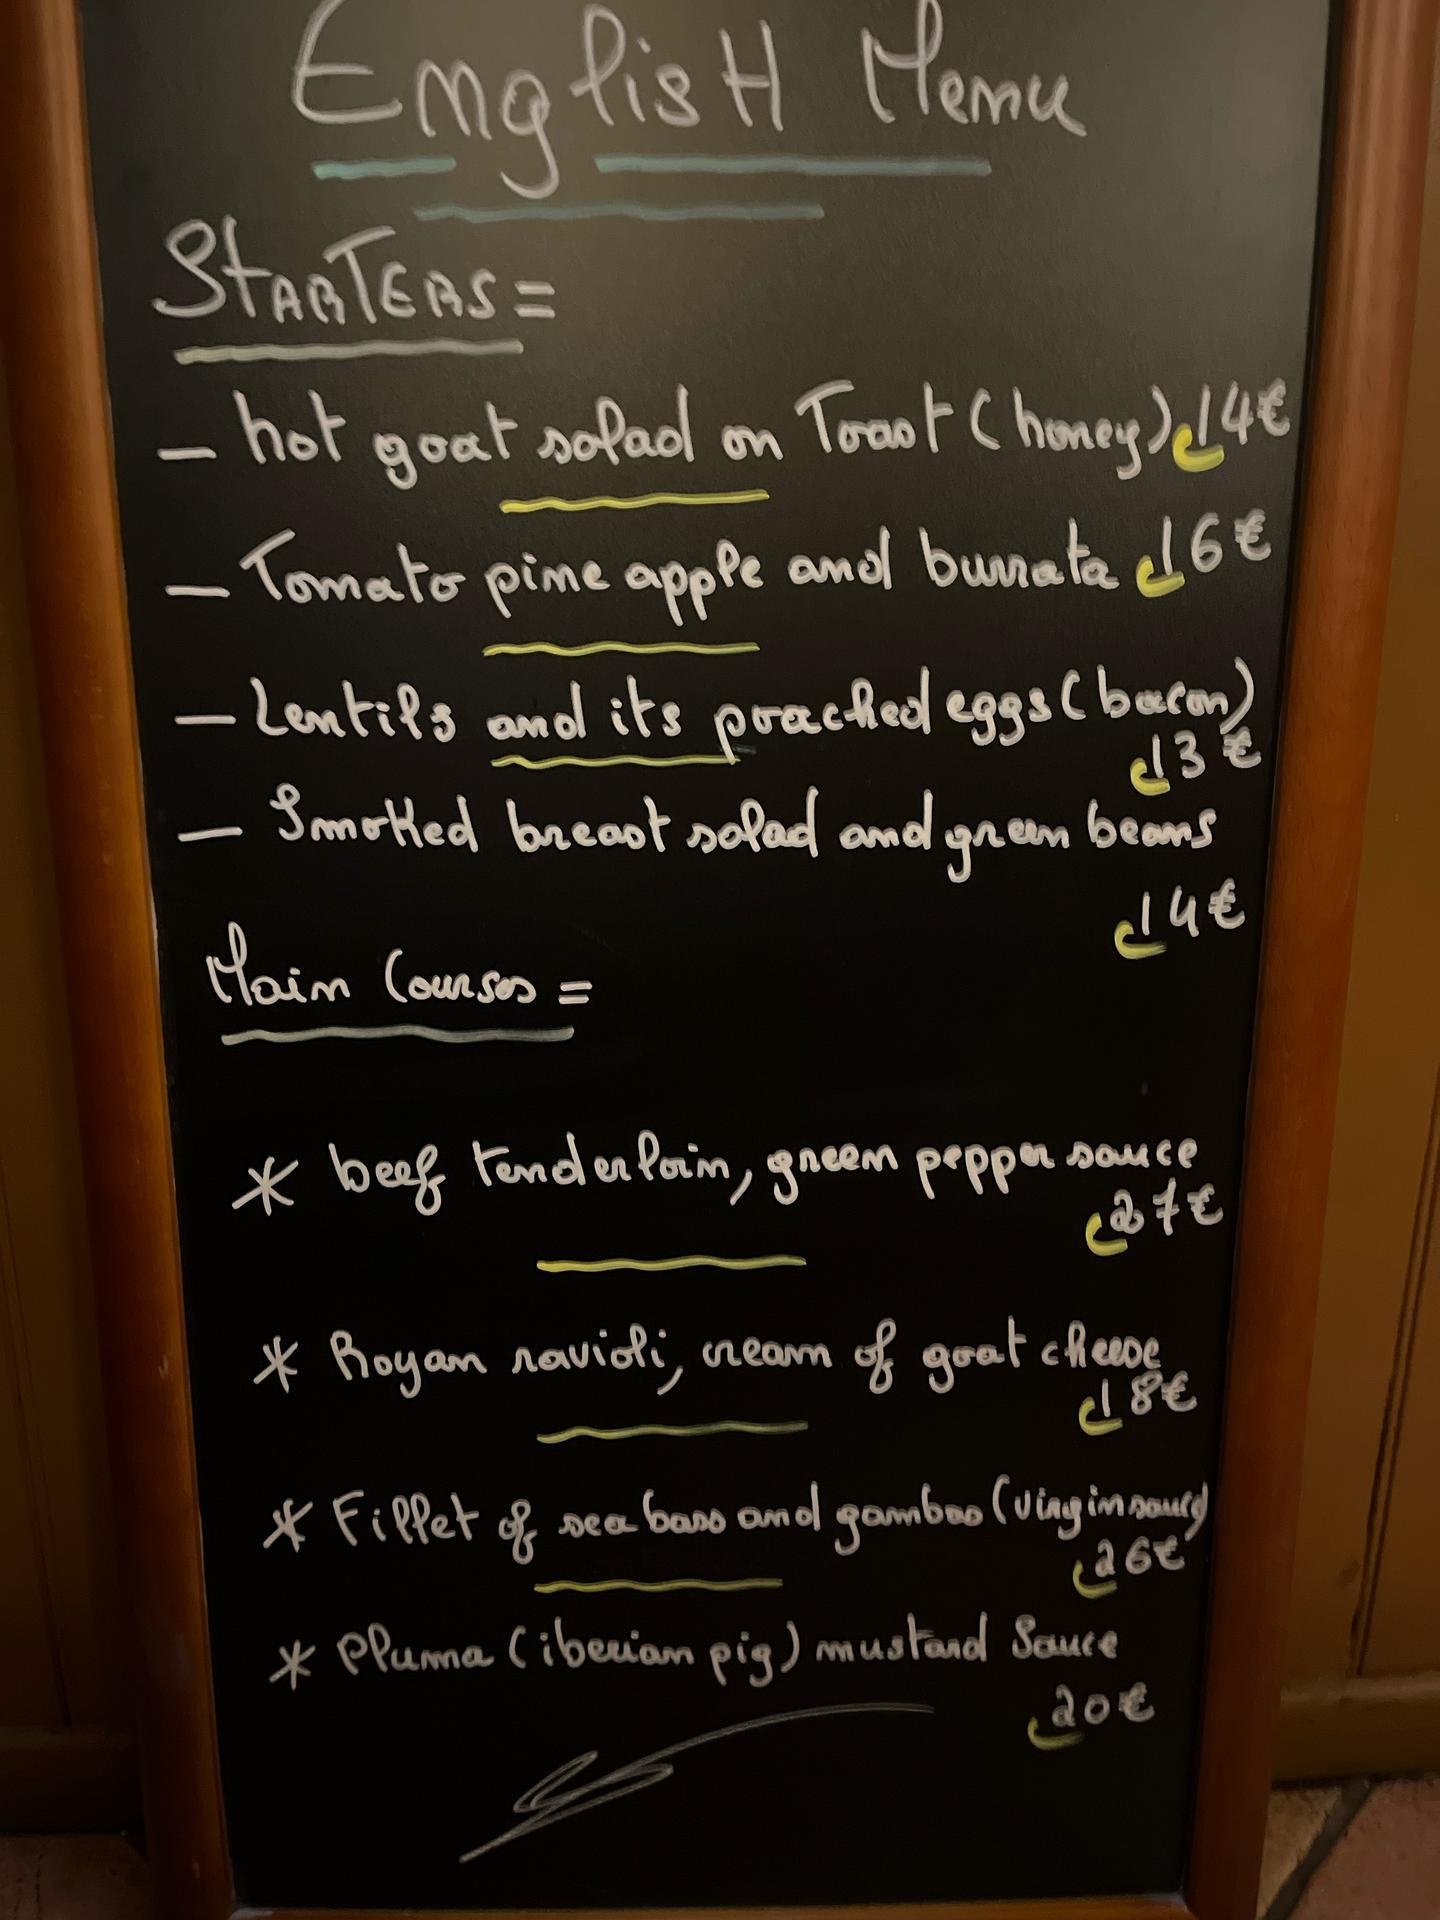 English Menu
STARTERS =
- hot goat salad on Toast (honey) 14€
- Tomato pine apple and burrata 16€
- Lentils and its poached eggs (bacon)
13€
- Smoked breast salad and green beans
14€
Main Courses =
* beef tenderloin, green pepper sauce
27€
* Royan ravioli, cream of goat cheese
18€
* Fillet of sea bass and gambas (virgin sauce)
26€
* Pluma (iberian pig) mustard Sauce
20€